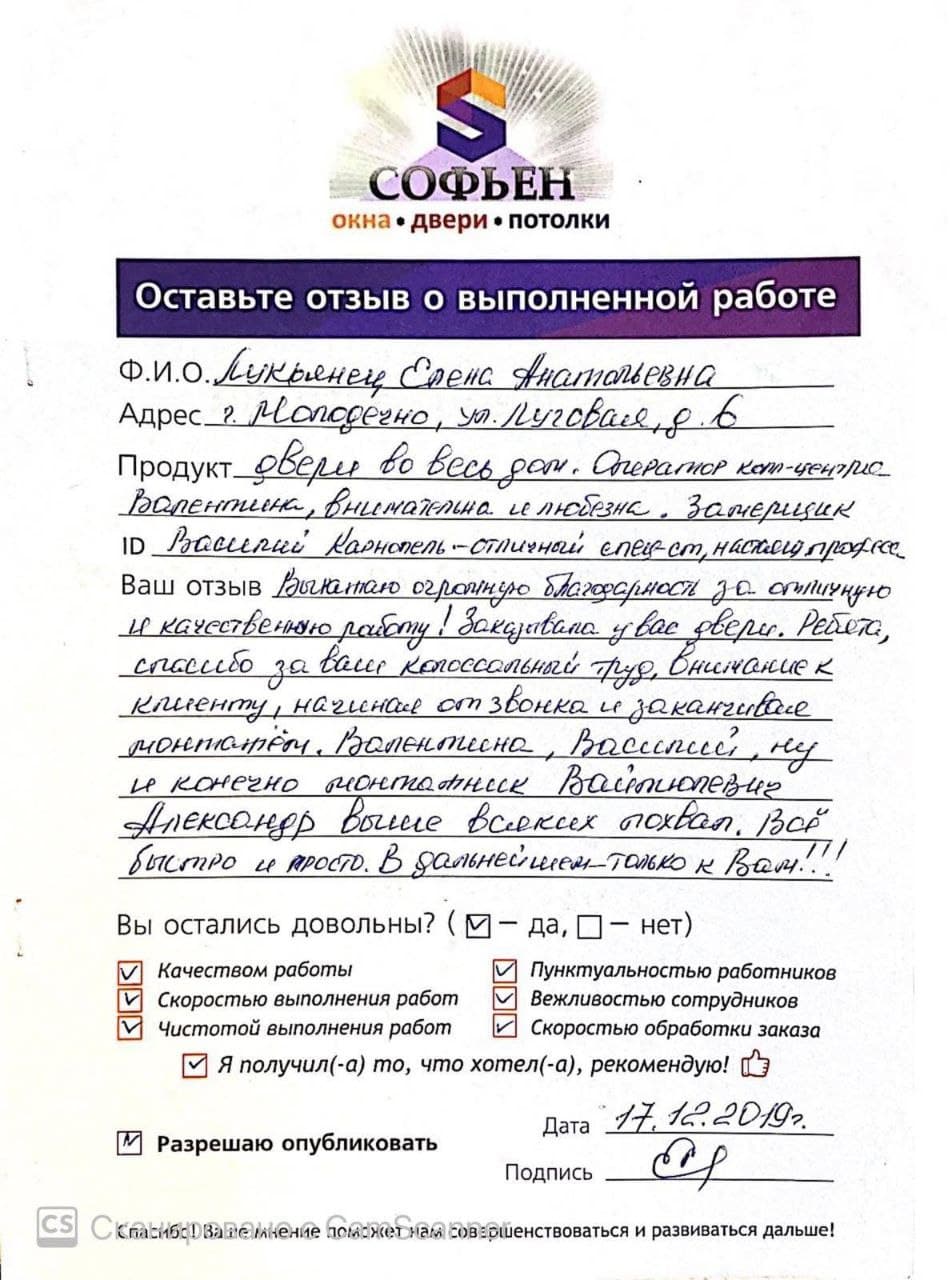 СОФЬЕН
окна • двери • потолки
Оставьте отзыв о выполненной работе
Ф.И.О. Лукьянец Елена Анатольевна
Адрес г. Молодечно, ул. Луговая, д. 6
Продукт двери во весь дом. Оператор кол-центра
Валентина, внимательна и любезна. Замерщик
ID Василий Карнопель - отличный спец-ст,
Ваш отзыв Выражаю огромную благодарность за отличную
и качественную работу! Заказывала у вас двери. Ребята,
спасибо за ваш колоссальный труд, внимание к
клиенту, начиная от звонка и заканчивая
монтажём. Валентина, Василий, ну
и конечно монтажник Войтюлевич
Александр выше всяких похвал. Всё
быстро и просто. В дальнейшем - только к Вам!!!
Вы остались довольны? ( ☑ — да, ☐ — нет)
☑ Качеством работы ☑ Пунктуальностью работников
☑ Скоростью выполнения работ ☑ Вежливостью сотрудников
☑ Чистотой выполнения работ ☑ Скоростью обработки заказа
☑ Я получил(-а) то, что хотел(-а), рекомендую!
Дата 17.12.2019г.
☑ Разрешаю опубликовать
Подпись
CS Сканировано с CamScanner
Спасибо! Ваше мнение поможет нам совершенствоваться и развиваться дальше!